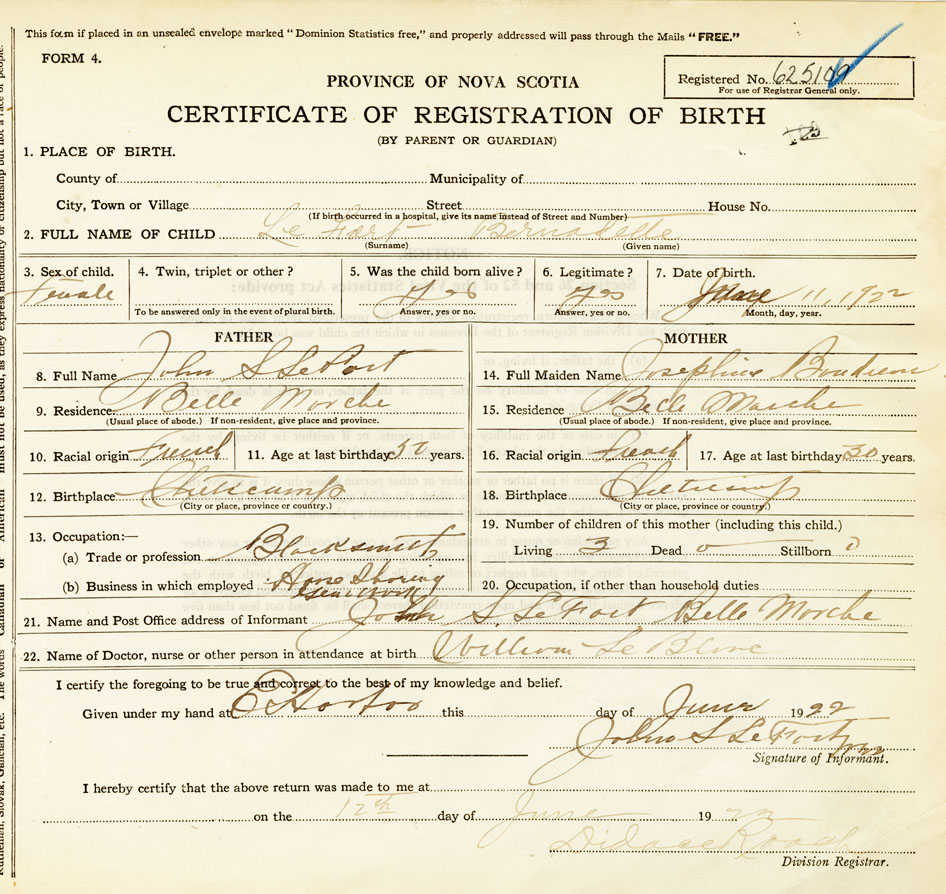 This form if placed in an unsealed envelope marked "Dominion Statistics free," and properly addressed will pass through the Mails "FREE."
FORM 4.
Registered No. 625109
For use of Registrar General only.
PROVINCE OF NOVA SCOTIA
CERTIFICATE OF REGISTRATION OF BIRTH
(BY PARENT OR GUARDIAN)
1. PLACE OF BIRTH.
County of Municipality of
City, Town or Village Street House No.
(If birth occurred in a hospital, give its name instead of Street and Number)
2. FULL NAME OF CHILD Le Fort Bernadette
(Surname) (Given name)
3. Sex of child. 4. Twin, triplet or other? 5. Was the child born alive? 6. Legitimate? 7. Date of birth.
Female yes yes June 11, 1922
To be answered only in the event of plural birth. Answer, yes or no. Answer, yes or no. Month, day, year.
FATHER
8. Full Name John S LeFort
9. Residence Belle Marche
(Usual place of abode.) If non-resident, give place and province.
10. Racial origin French 11. Age at last birthday 50 years.
12. Birthplace Cheticamp
(City or place, province or country.)
13. Occupation:—
(a) Trade or profession Blacksmith
(b) Business in which employed Horse Shoeing
MOTHER
14. Full Maiden Name Josephine Boudreau
15. Residence Belle Marche
(Usual place of abode.) If non-resident, give place and province.
16. Racial origin French 17. Age at last birthday 30 years.
18. Birthplace Cheticamp
(City or place, province or country.)
19. Number of children of this mother (including this child.)
Living 3 Dead 0 Stillborn 0
20. Occupation, if other than household duties
21. Name and Post Office address of Informant John S. LeFort Belle Marche
22. Name of Doctor, nurse or other person in attendance at birth William Le Blanc
I certify the foregoing to be true and correct to the best of my knowledge and belief.
Given under my hand at this day of June 1922
John S LeFort
Signature of Informant.
I hereby certify that the above return was made to me at
on the 12th day of June 19 22
Didace Roach
Division Registrar.